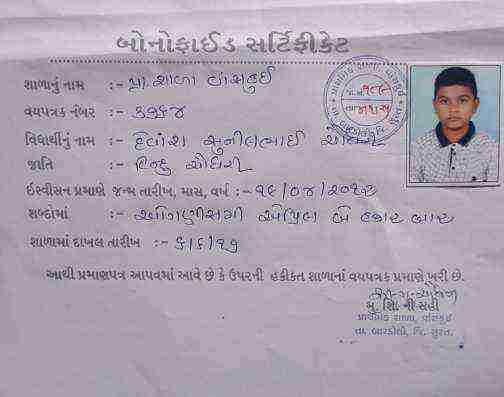 બોનોફાઈડ સર્ટિફીકેટ
શાળાનું નામ :- પ્રા. શાળા
વયપત્રક નંબર :- ૩૭૬૪
વિદ્યાર્થીનું નામ :- સુનીલભાઈ ચૌધરી
જાતિ :- હિન્દુ ચૌધરી
ઇસ્વીસન પ્રમાણે જન્મ તારીખ, માસ, વર્ષ :- ૧૯/૦૪/૨૦૧૨
શબ્દોમાં :- ઓગણીસમી એપ્રિલ બે હજાર બાર
શાળામાં દાખલ તારીખ :-
આથી પ્રમાણપત્ર આપવામાં આવે છે કે ઉપરની હકીકત શાળાનાં વયપત્રક પ્રમાણે ખરી છે.
મુ. શિ. ની સહી
પ્રાથમિક શાળા,
તા. બારડોલી, જિ. સુરત.